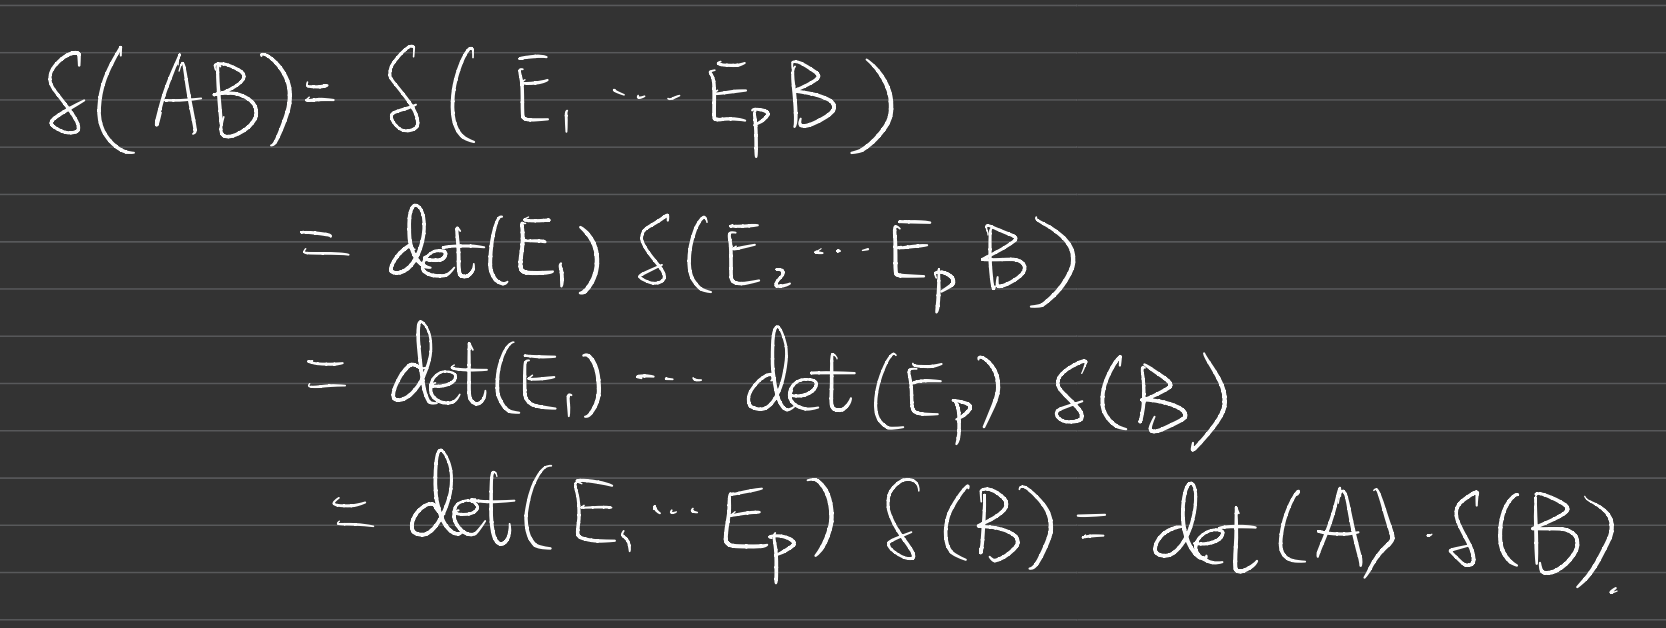 δ(AB) = δ(E₁ ⋯ EₚB)
= det(E₁) δ(E₂ ⋯ EₚB)
= det(E₁) ⋯ det(Eₚ) δ(B)
= det(E₁ ⋯ Eₚ) δ(B) = det(A) · δ(B).